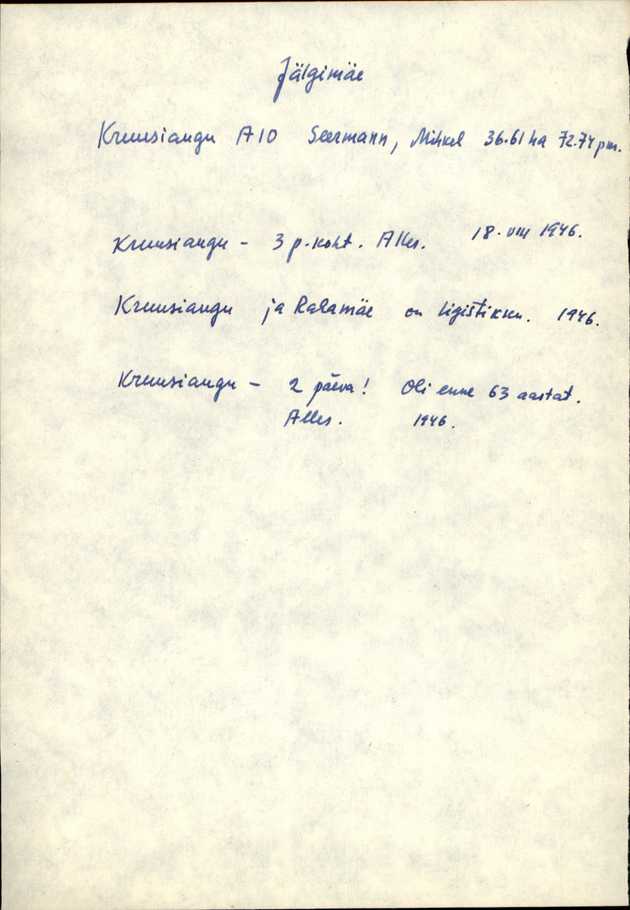 Jälgimäe
Kruusiaugu A10 Seermann, Mihkel 36.61 ha 72.74 pm.
Kruusiaugu - 3 p. koht. Alles. 18. VIII 1946.
Kruusiaugu ja Ralamäe on ligistikku. 1946.
Kruusiaugu - 2 päeva! Oli enne 63 aastat.
Alles. 1946.